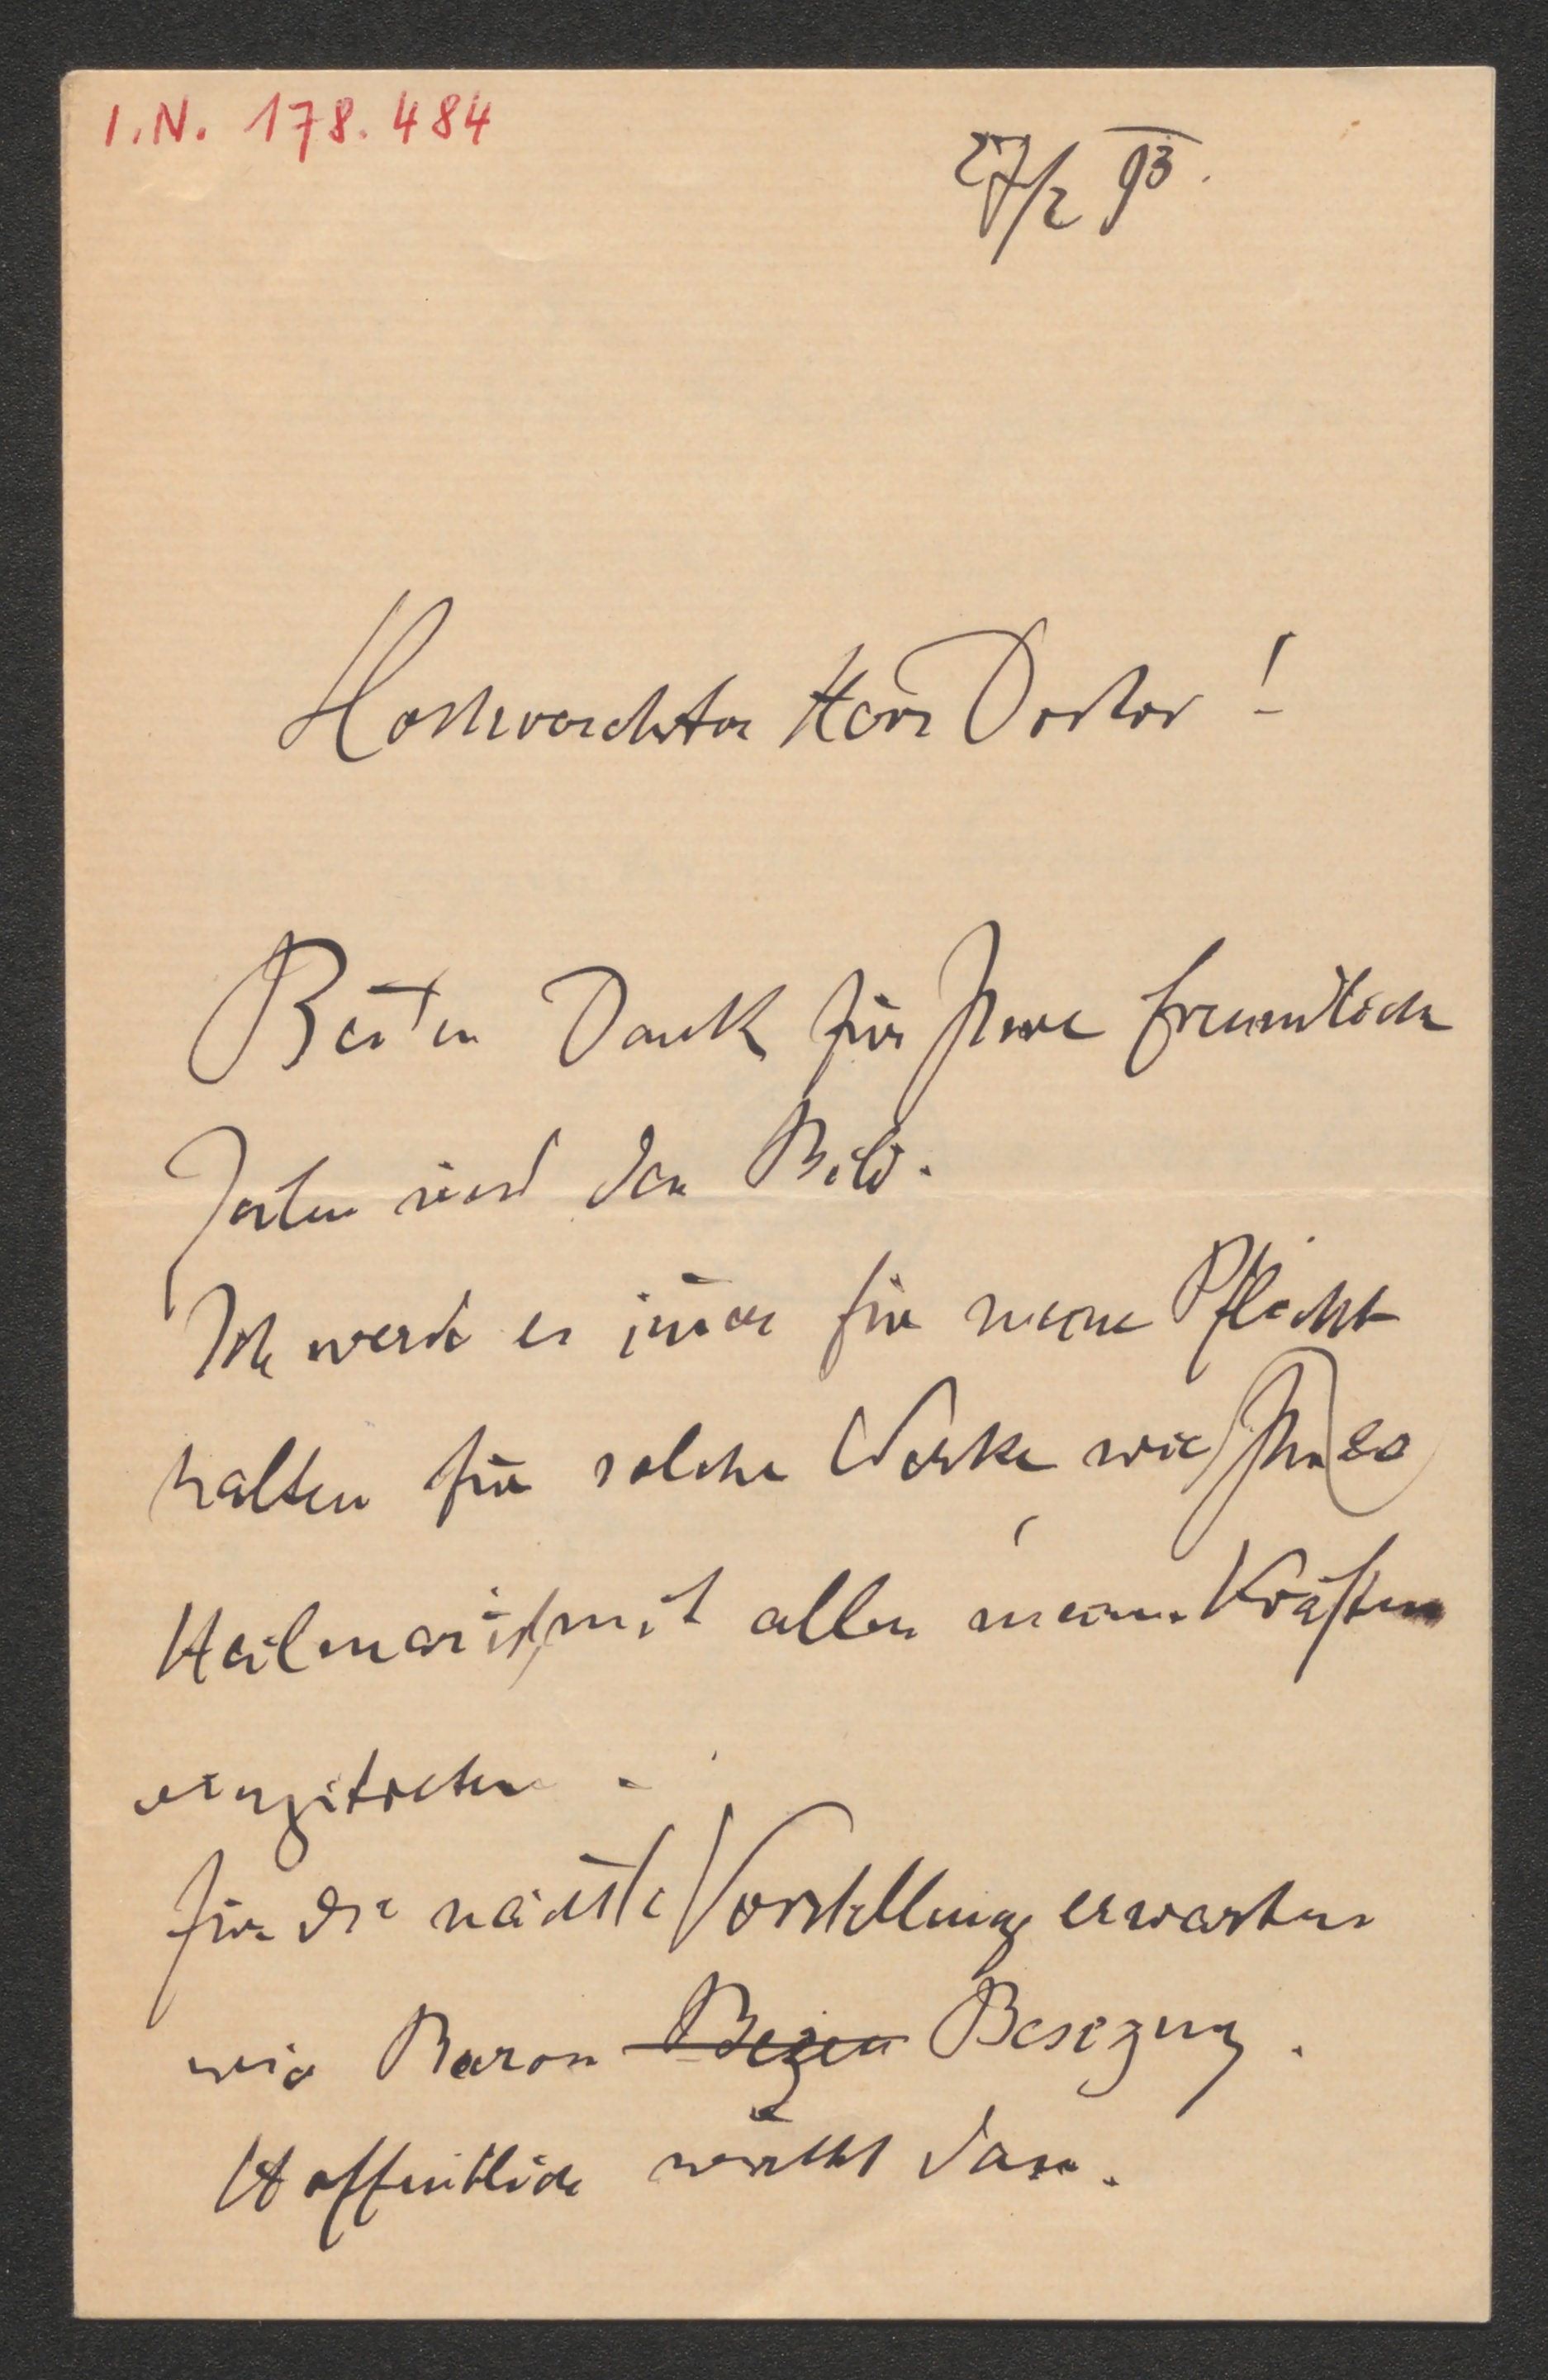 I.N. 178.484
27/2 93.
Hochverehrter Herr Doctor!
Besten Dank für Ihre freundlichen
Zeilen und das Bild.
Ich werde es im̅er für meine Pflicht
halten für solche Werke wie Ihr
mit allen meinen Kräften
einzutreten.
Für die nächste Vorstellung erwarten
wir Baron Besezny.
Hoffentlich